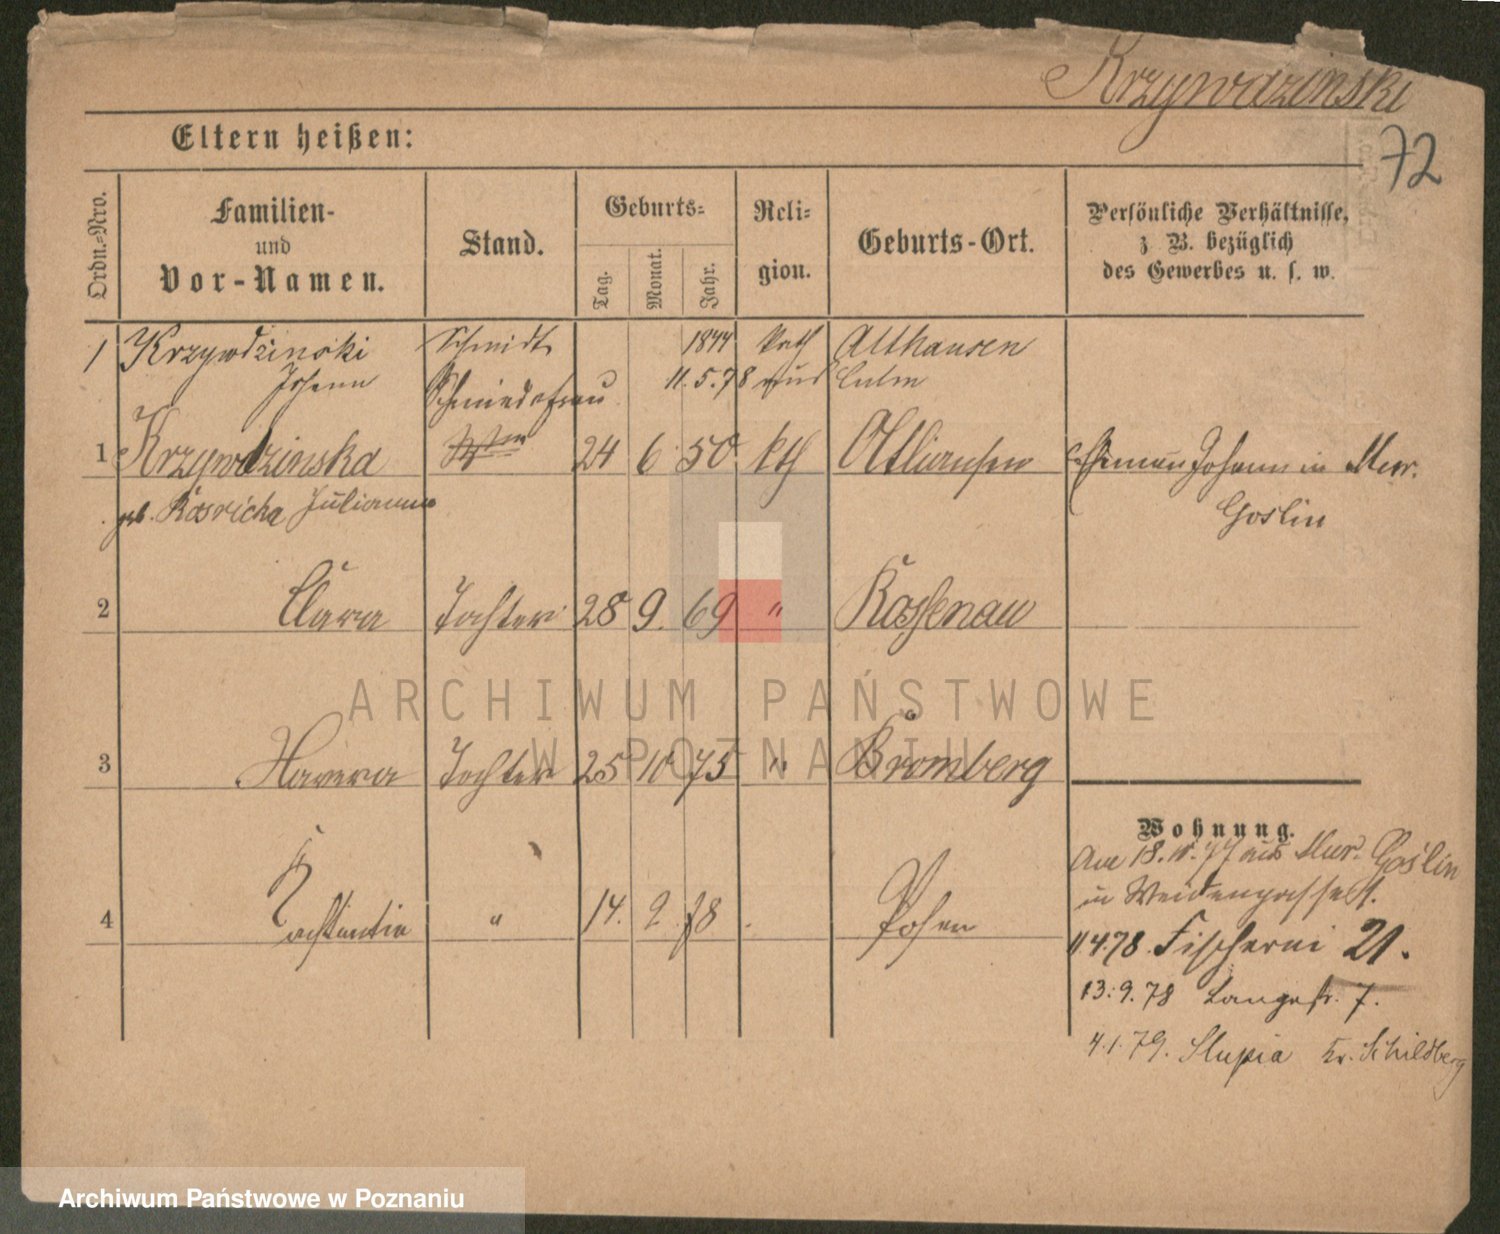 Krzywdzinski
72
Eltern heißen:
Ordn.-Nro.
Familien-
und
Vor-Namen.
Stand.
Geburts-
Tag.
Monat.
Jahr.
Reli-
gion.
Geburts-Ort.
Persönliche Verhältnisse,
z. B. bezüglich
des Gewerbes u. s. w.
1 Krzywdzinski Schmidt 1844 kath Althausen
Johann 11.5.78 Culm
Schmiedefrau
1 Krzywdzinska 24 6 50 kth Althausen Ehemann Johann in Mur.
geb. Julianna Goslin
2 Clara Tochter 28 9. 69 " Kossenau
3 Tochter 25 10 75 " Bromberg
4 " 14. 2. 78 Posen
Wohnung.
Am 18.10.77 aus Mur. Goslin
in Weidengasse 1.
11.4.78 Fischerei 21.
13.9.78 Langestr. 7.
4.1.79. Slupia Kr. Schildberg
ARCHIWUM PAŃSTWOWE
W POZNANIU
Archiwum Państwowe w Poznaniu